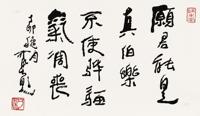 願君能是
真伯樂
不使驊騮
氣凋喪